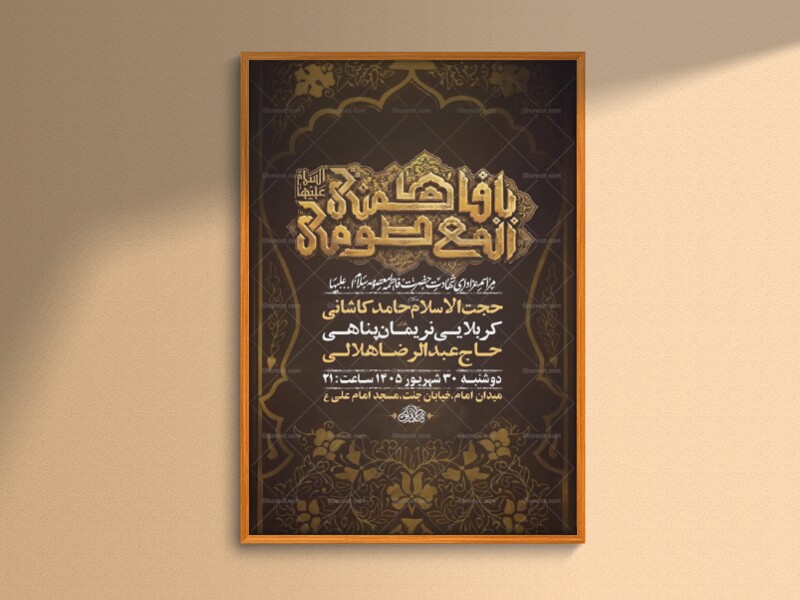 یا فاطمة
المعصومة
السلام
علیها
مراسم عزاداری شهادت حضرت فاطمه معصومه سلام ا... علیها
حجت الاسلام حامد کاشانی
کربلایی نریمان پناهی
حاج عبدالرضا هلالی
دوشنبه ۳۰ شهریور ۱۴۰۵ ساعت: ۲۱
میدان امام، خیابان جنت، مسجد امام علی ع
Ghonoot.com